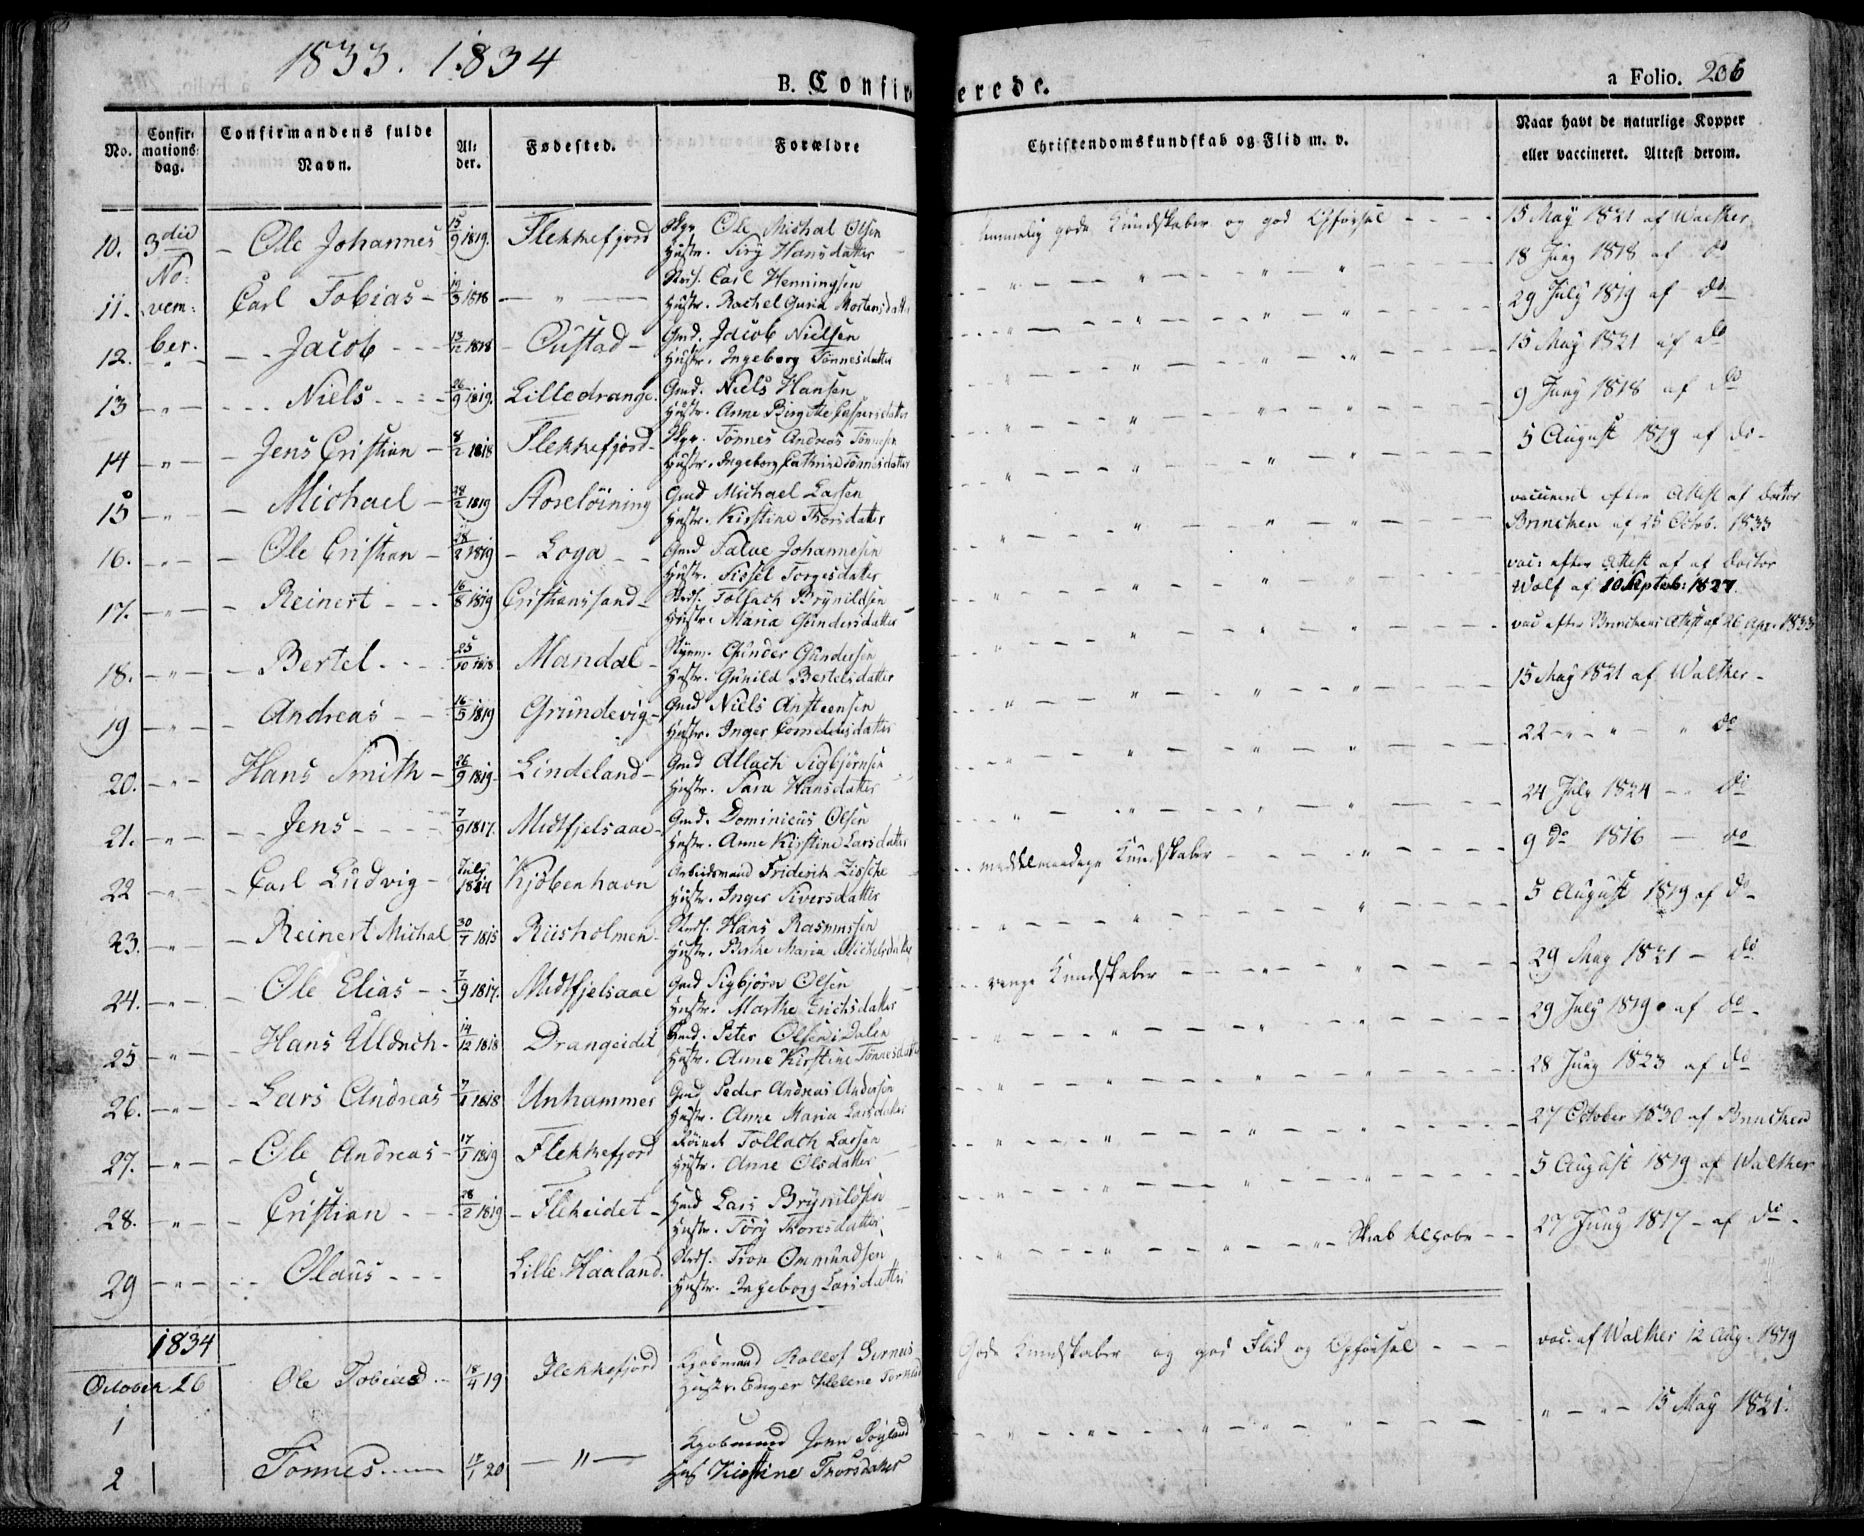 1833. 1834
B. Confirmerede.
a Folio. 206
No.
Confirmations-dag.
Confirmandens fulde Navn.
Alder.
Fødested.
Forældre
Christendomskundskab og Flid m. v.
Naar havt de naturlige Kopper eller vaccineret. Attest derom.
10. 3die No- Ole Johannes 15/9 1819. Flekkefjord Skpr Ole Michal Olsen
Hustr. Siry Hansdatter
Temmelig gode Kundskaber og god Opførsel 15 May 1821 af Walther
11. vem- Carl Tobias 19/3 1818 — " — Strds. Carl Henningsen
Hustr. Rachel Guria Mortensdatter
" " " " 18 Juny 1818 af do
12. ber. Jacob 13/12 1818 Oustad Gmd. Jacob Nielsen
Hustr. Ingeborg Tønnesdatter
" " " " 29 July 1819 af do
13 " Niels 26/9 1819. Lilledrange. Gmd. Niels Hansen
Hustr. Anne Birgitte Caspersdatter
" " " " 15 May 1821 af do
14 " Jens Cristian 8/2 1818 Flekkefjord Skpr. Tønnes Andreas Tønnesen
Hustr. Ingeborg Cathrine Tønnesdatter
" " " " 9 Juny 1818 af do
15 " Michael 24/2 1819 Gmd Michael Larsen
Hustr. Kirstine Thorsdatter
" " " " 5 August 1819 af do
16. " Ole Cristian 28/2 1819 Loga Gmd Salve Johannesen
Hustr. Sissel Torgesdatter
" " " " vaccineret efter Attest af Doctor
Brincken af 25 Octob. 1833
17. " Reinert 16/8 1819 Cristianssand Strds. Tollach Brynildsen
Hustr. Maria Gundersdatter
" " " " vac. efter Attest af af Doctor
Wolf af 10 Septeb: 1827.
18. " Bertel 25/10 1818 Mandal Styrm. Gunder Gundersen
Hustr. Gunild Bertelsdatter
" " " " vac efter Brinckens Attest af 26 Apr. 1833
19 " Andreas 16/5 1819 Grundevig Gmd Niels Ansteensen
Hustr. Inger Corneliusdatter
" " " " 15 May 1821 af Walther
20. " Hans Smith 26/9 1819 Lindeland Gmd Atlach Sigbjørnsen
Hustr. Sara Hansdatter
" " " " 22 " " do
21. " Jens 7/9 1817. Midtfjelsaae Gmd. Dominicus Olsen
Hustr. Anne Kirstine Larsdatter
" " " " 24 July 1824 " do
22 " Carl Ludvig July 1814 Kjöbenhavn Arbeidsmand Friderich Zissche
Hustr. Inger Siversdatter
middelmaadige Kundskaber " 9 do 1816 — do
23. " Reinert Michal 30/7 1815 Riisholmen Strds. Hans Rasmussen
Hustr. Birthe Maria Michelsdatter
" " " 5 August 1819 af do
24. " Ole Elias 7/9 1817. Midtfjelsaae Gmd Sigbjørn Olsen
Hustr. Marthe Erichsdatter
ringe Kundskaber " " 29 May 1821 — do
25 " Hans Uldrich 14/12 1818 Drangeidet Gmd. Peter Olsen i Dalen
Hustr. Anne Kirstine Tønnesdatter
" " " " 29 July 1819 af do
26. " Lars Andreas 7/1 1818 Unhammer Gmd Peder Andreas Andersen
Hustr. Anne Maria Larsdatter
" " " " 28 Juny 1823 af do
27. " Ole Andreas 17/1 1819 Flekkefjord Tollach Larsen
Hustr. Anne Olsdatter
" " " " 27 October 1830 af Brincken
28. " Cristian 28/2 1819 Flekeidet Lars Brynildsen
Hustr. Tory Thoresdatter
" " " 5 August 1819 af Walther
29 " Olaus Lille Haaland. Strds. Tron Ommundsen
Hustr. Ingeborg Larsdatter
" " " " 27 Juny 1817 af do
1834
October 26
1 Ole Tobias 18/4 19 Flekkefjord Kjøbmand Rollef
Hustr. Enger Helene
Gode Kundskaber og god Flid og Opførsel vac. af Walther 12 Aug. 1819
2 Tønnes 17/1 20 — " — Kjøbmand John
Hus Kirstine Thorsdatter
" " " " " 15 May 1821.